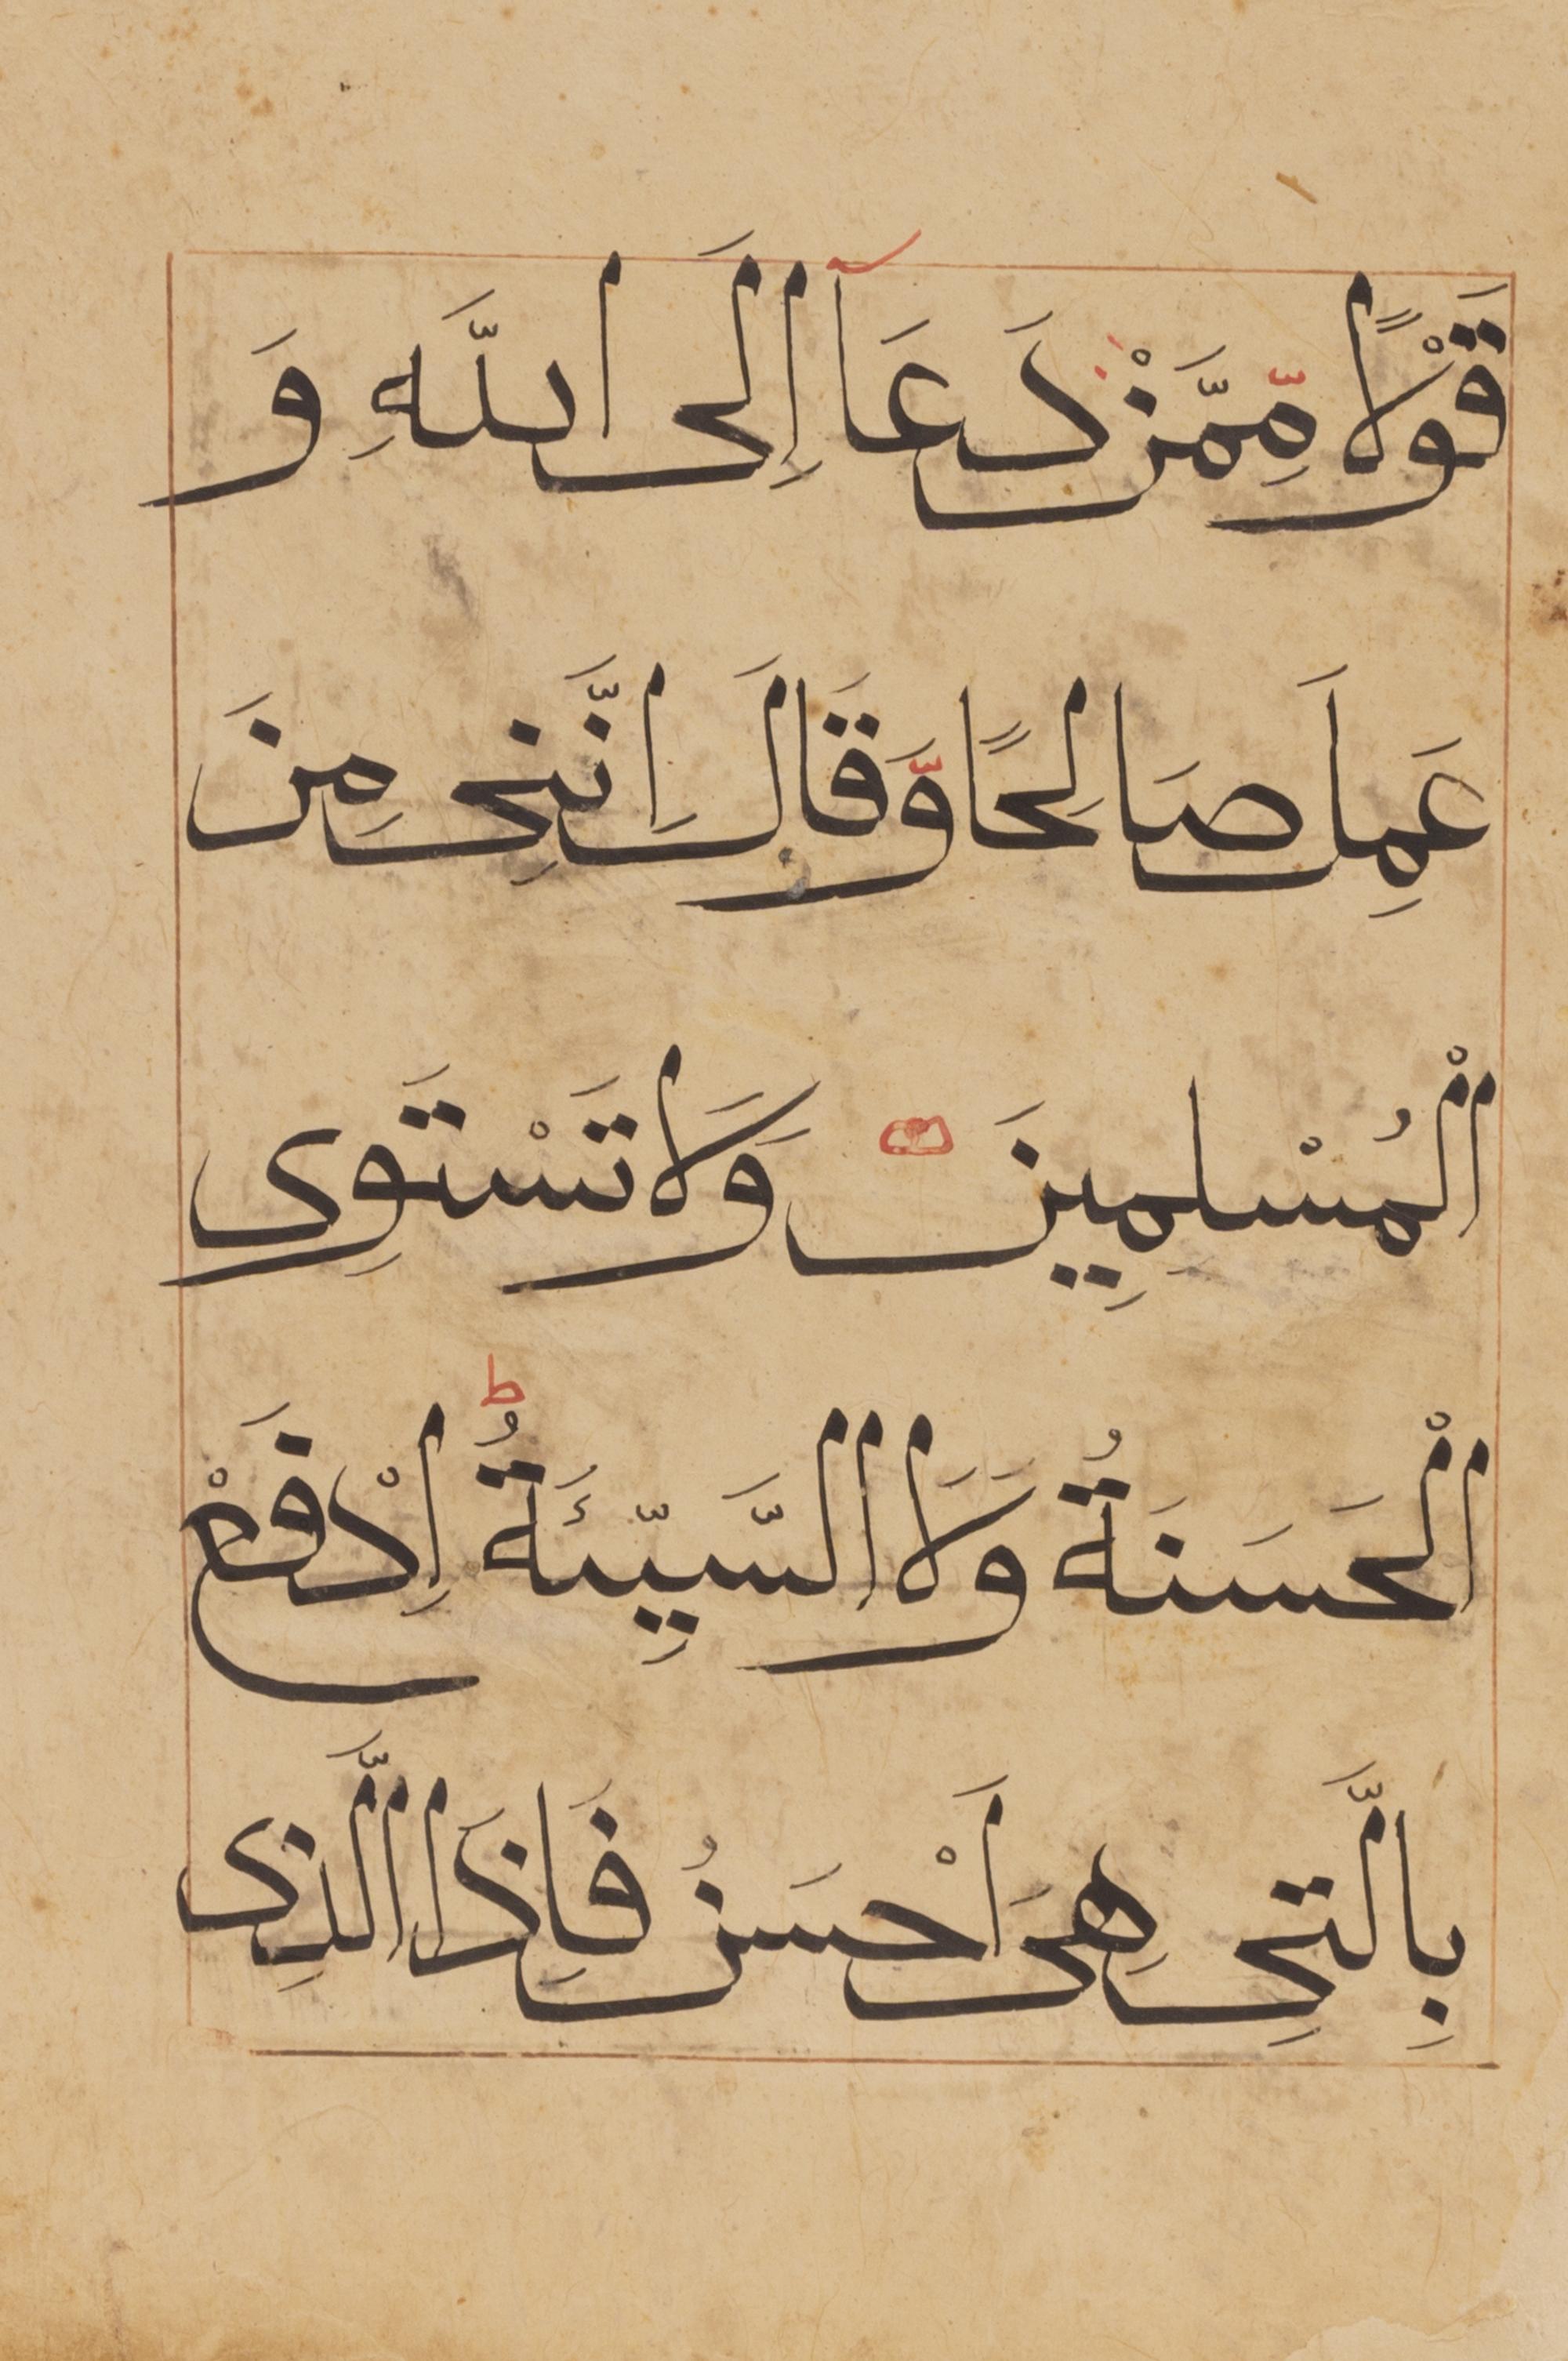 قَوْلًا مِّمَّنْ دَعَآ اِلَى اللَّهِ وَ
عَمِلَ صَالِحًا وَّقَالَ اِنَّنِى مِنَ
الْمُسْلِمِينَ وَلَا تَسْتَوِى
الْحَسَنَةُ وَلَا السَّيِّئَةُ ط اِدْفَعْ
بِالَّتِى هِىَ أَحْسَنُ فَاِذَا الَّذِى